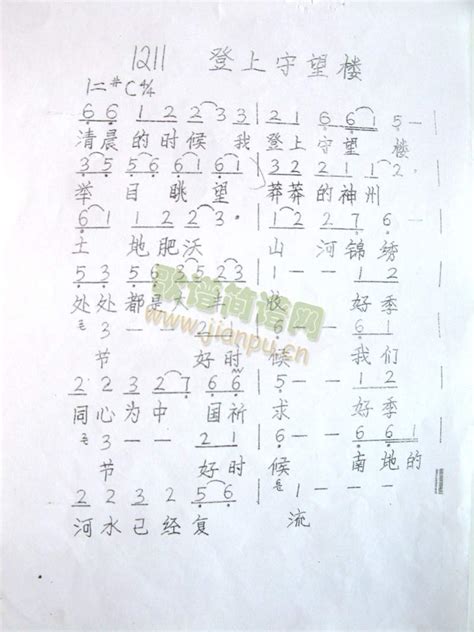 1211 登上守望楼
1=#C 4/4
6 6 1 2 2 3 3 | 2 1 6 6 1 5 - |
清晨的时候我 登上守望 楼
3 5 5 6 6 1 6 1 | 3 2 2 1 1 2 - |
举目眺望 莽莽的神州
6 1 1 2 2 2 3 · | 1 2 2 7 6 |
土地肥沃 山河锦绣
5 3 6 3 5 2 3 | 1 - - 1 2 |
处处都是大丰 收 好季
3 - - 2 1 | 6 - - 6 1 |
节 好时 候 我们
2 2 3 2 7 6 6 | 5 - - 1 2 |
同心为中国祈 求 好季
3 - - 2 1 | 6 - - 6 6 1 |
节 好时 候 南地的
2 2 2 3 5 6 | 1 - - - |
河水已经复 流
歌谱简谱网
www.jianpu.cn